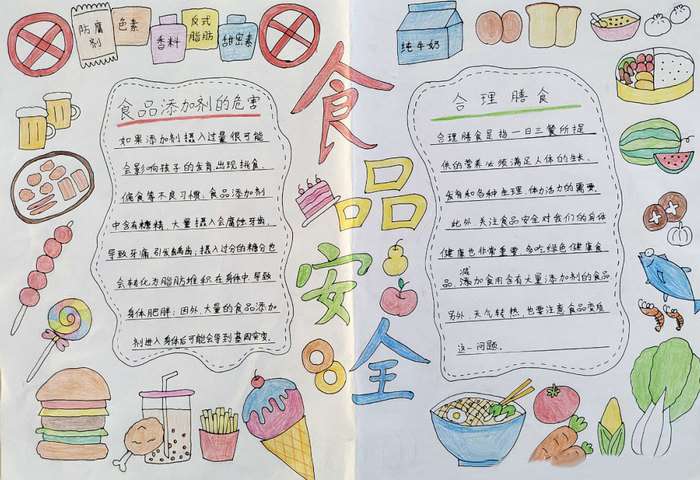 防腐剂
色素
香料
反式脂肪
甜蜜素
纯牛奶
食品安全
食品添加剂的危害
如果添加剂摄入过量很可能
会影响孩子的发育出现挑食.
偏食等不良习惯;食品添加剂
中含有糖精,大量摄入会腐蚀牙齿.
导致牙痛,引发龋齿;摄入过分的糖分也
会转化为脂肪堆积在身体中,导致
身体肥胖;因外,大量的食品添加
剂进入身体后可能会导到基因突变.
合理膳食
合理膳食是指一日三餐所提
供的营养必须满足人体的生长.
发育和各种生理、体力活力的需要.
此外,关注食品安全对我们的身体
健康也非常重要,多吃绿色健康食
品,减添加食用含有大量添加剂的食品
另外,天气转热,也要注意食品变质
这一问题.